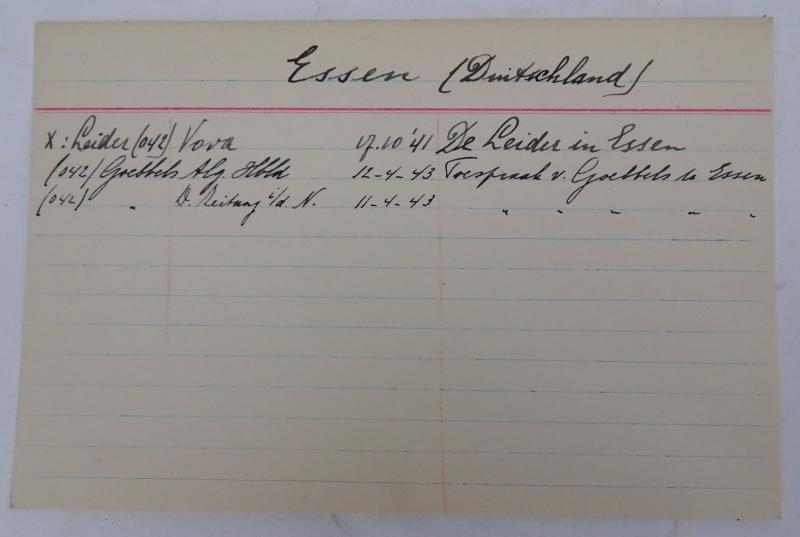 Essen (Duitschland)
X: Leider (042) Vova 17.10 '41 De Leider in Essen
(042) Goebbels Alg. Hbld 12-4-43 Toespraak v. Goebbels te Essen
(042) " D. Zeitung i/d. N. 11-4-43 " " " " "